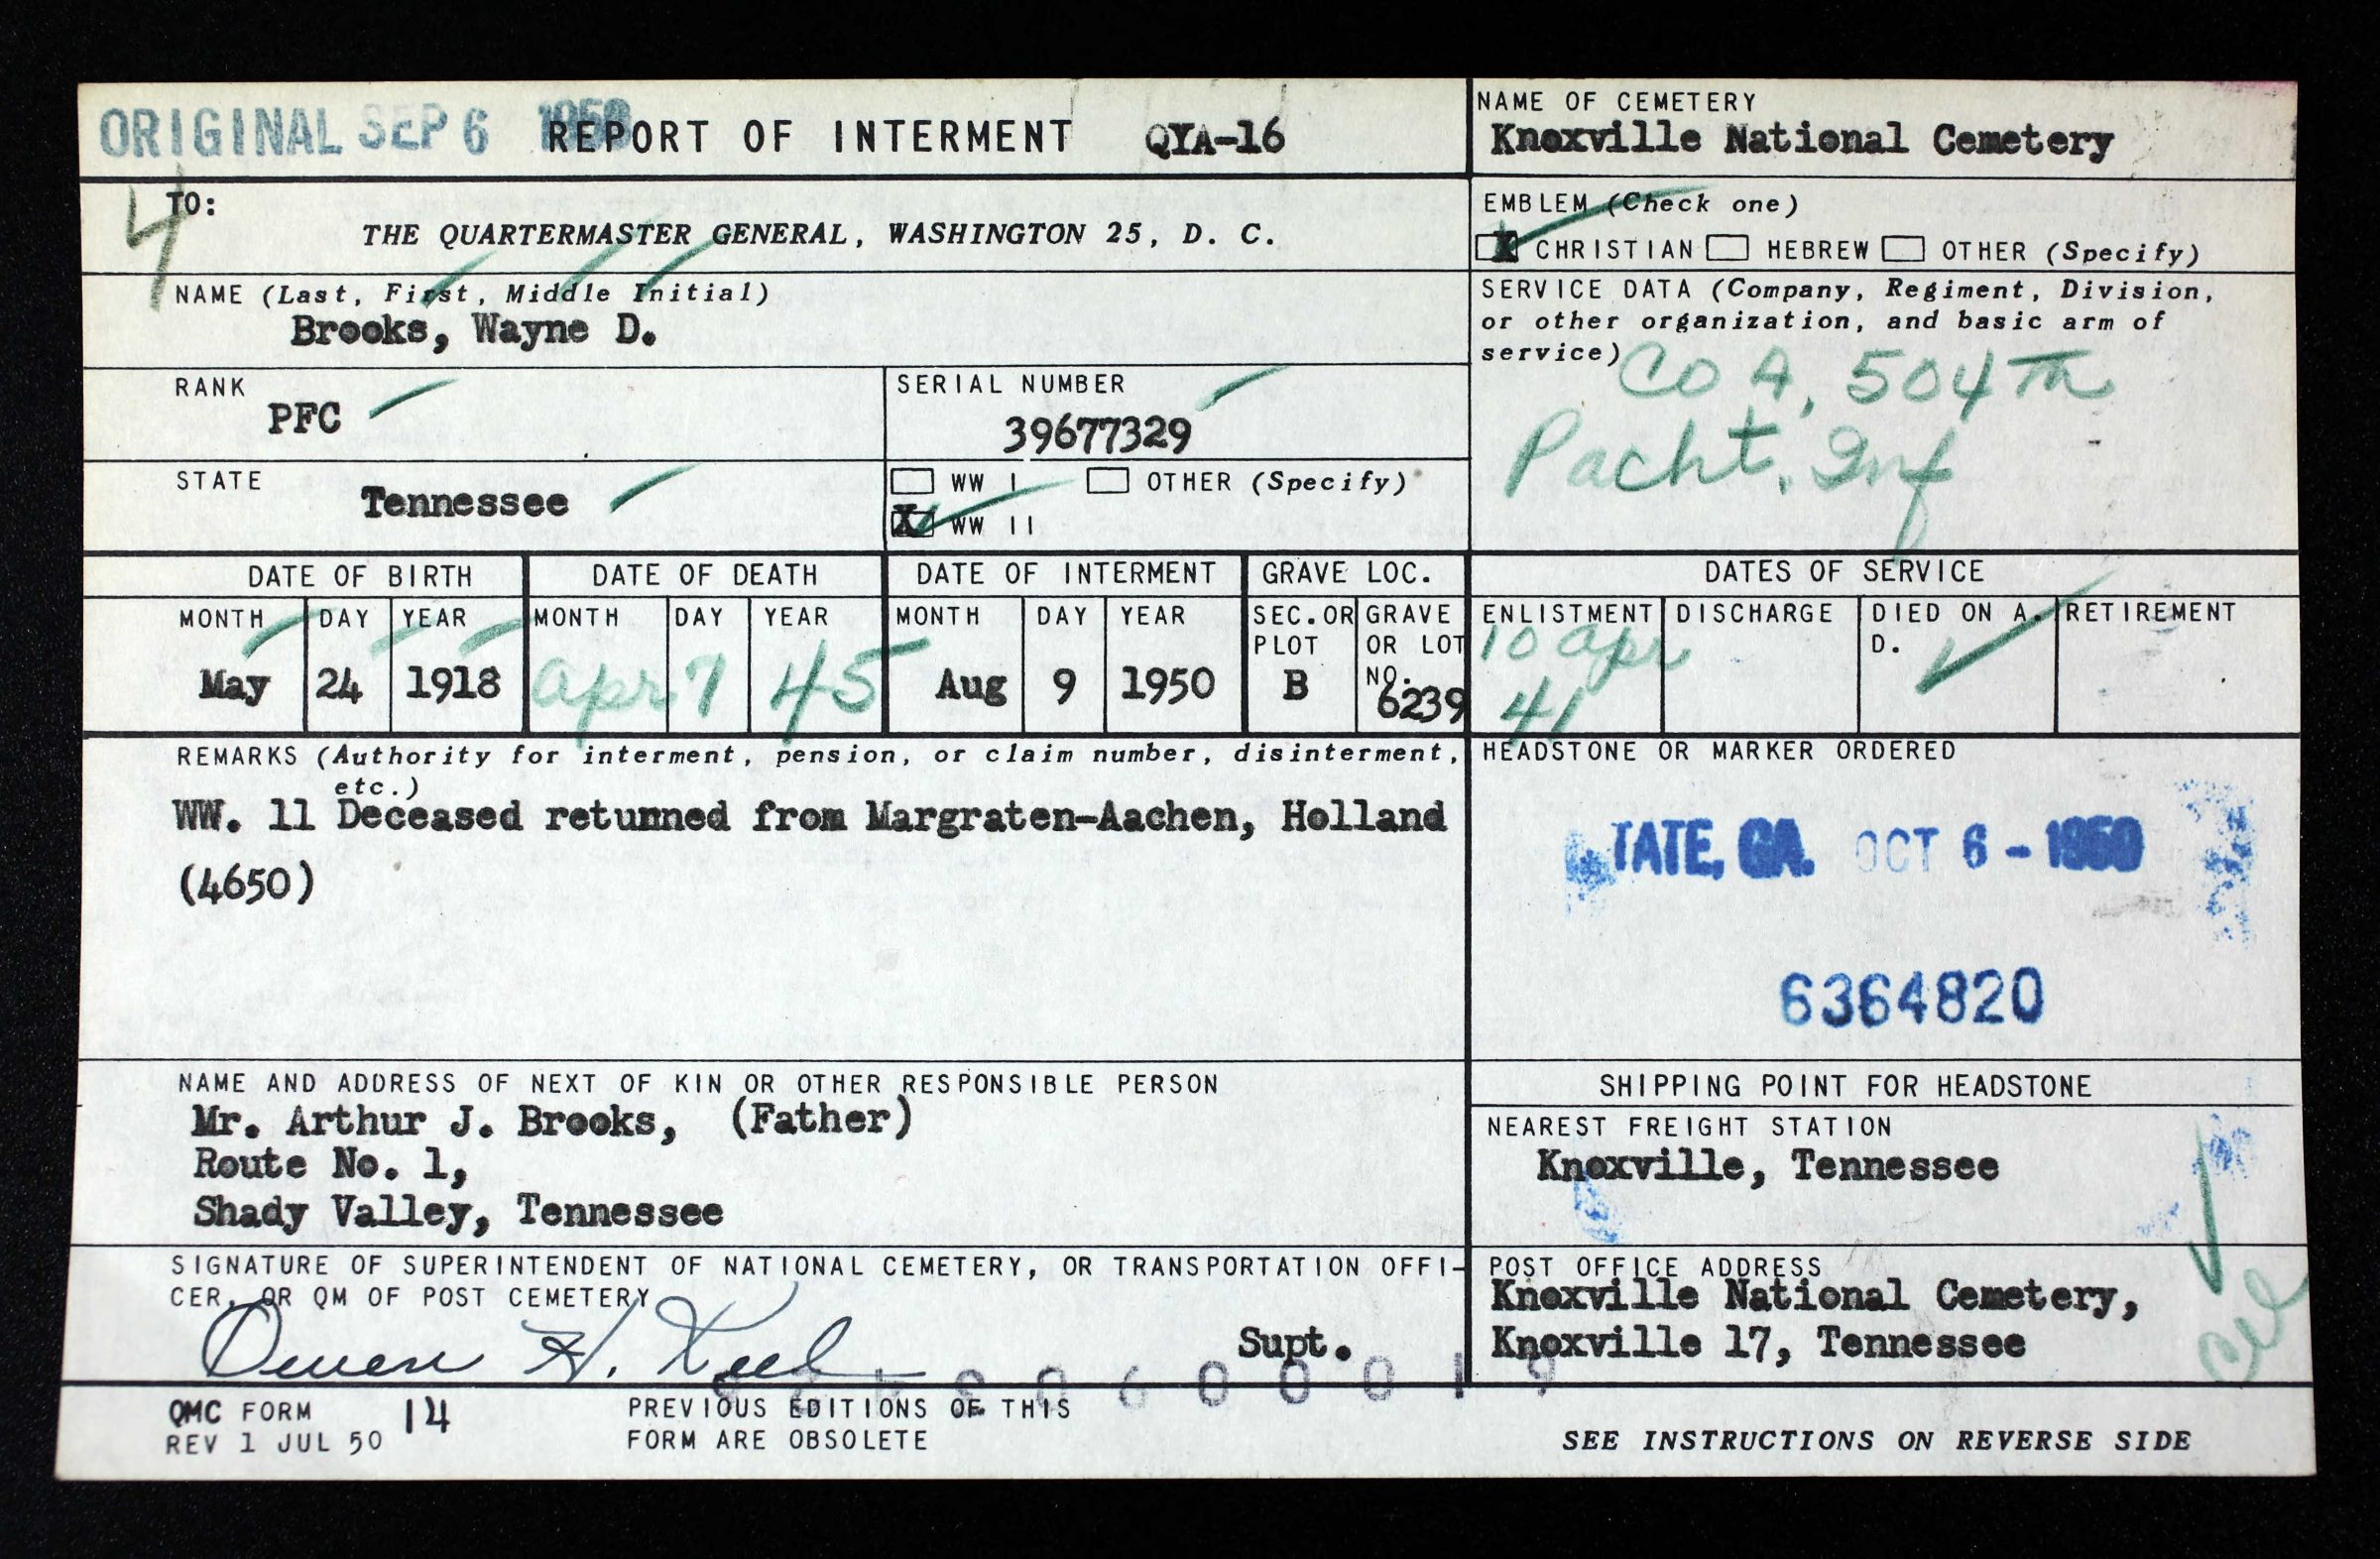 ORIGINAL SEP 6 1950 REPORT OF INTERMENT QYA-16
TO:
THE QUARTERMASTER GENERAL, WASHINGTON 25, D. C.
NAME (Last, First, Middle Initial)
Brooks, Wayne D.
RANK
PFC
SERIAL NUMBER
39677329
STATE
Tennessee
WW I
OTHER (Specify)
X WW II
NAME OF CEMETERY
Knoxville National Cemetery
EMBLEM (Check one)
X CHRISTIAN HEBREW OTHER (Specify)
SERVICE DATA (Company, Regiment, Division,
or other organization, and basic arm of
service)
CO A, 504TH
Pacht. Inf
DATE OF BIRTH
MONTH DAY YEAR
May 24 1918
DATE OF DEATH
MONTH DAY YEAR
Apr 7 45
DATE OF INTERMENT
MONTH DAY YEAR
Aug 9 1950
GRAVE LOC.
SEC. OR
PLOT
B
GRAVE
OR LOT
NO.
6239
DATES OF SERVICE
ENLISTMENT
10 Apr
41
DISCHARGE
DIED ON A.
D.
RETIREMENT
REMARKS (Authority for interment, pension, or claim number, disinterment,
etc.)
WW. 11 Deceased retunned from Margraten-Aachen, Holland
(4650)
HEADSTONE OR MARKER ORDERED
TATE, GA. OCT 6 - 1950
6364820
NAME AND ADDRESS OF NEXT OF KIN OR OTHER RESPONSIBLE PERSON
Mr. Arthur J. Brooks, (Father)
Route No. 1,
Shady Valley, Tennessee
SHIPPING POINT FOR HEADSTONE
NEAREST FREIGHT STATION
Knoxville, Tennessee
SIGNATURE OF SUPERINTENDENT OF NATIONAL CEMETERY, OR TRANSPORTATION OFFI-
CER, OR QM OF POST CEMETERY
Owen H. Supt.
POST OFFICE ADDRESS
Knoxville National Cemetery,
Knoxville 17, Tennessee
QMC FORM 14
REV 1 JUL 50
PREVIOUS EDITIONS OF THIS
FORM ARE OBSOLETE
SEE INSTRUCTIONS ON REVERSE SIDE